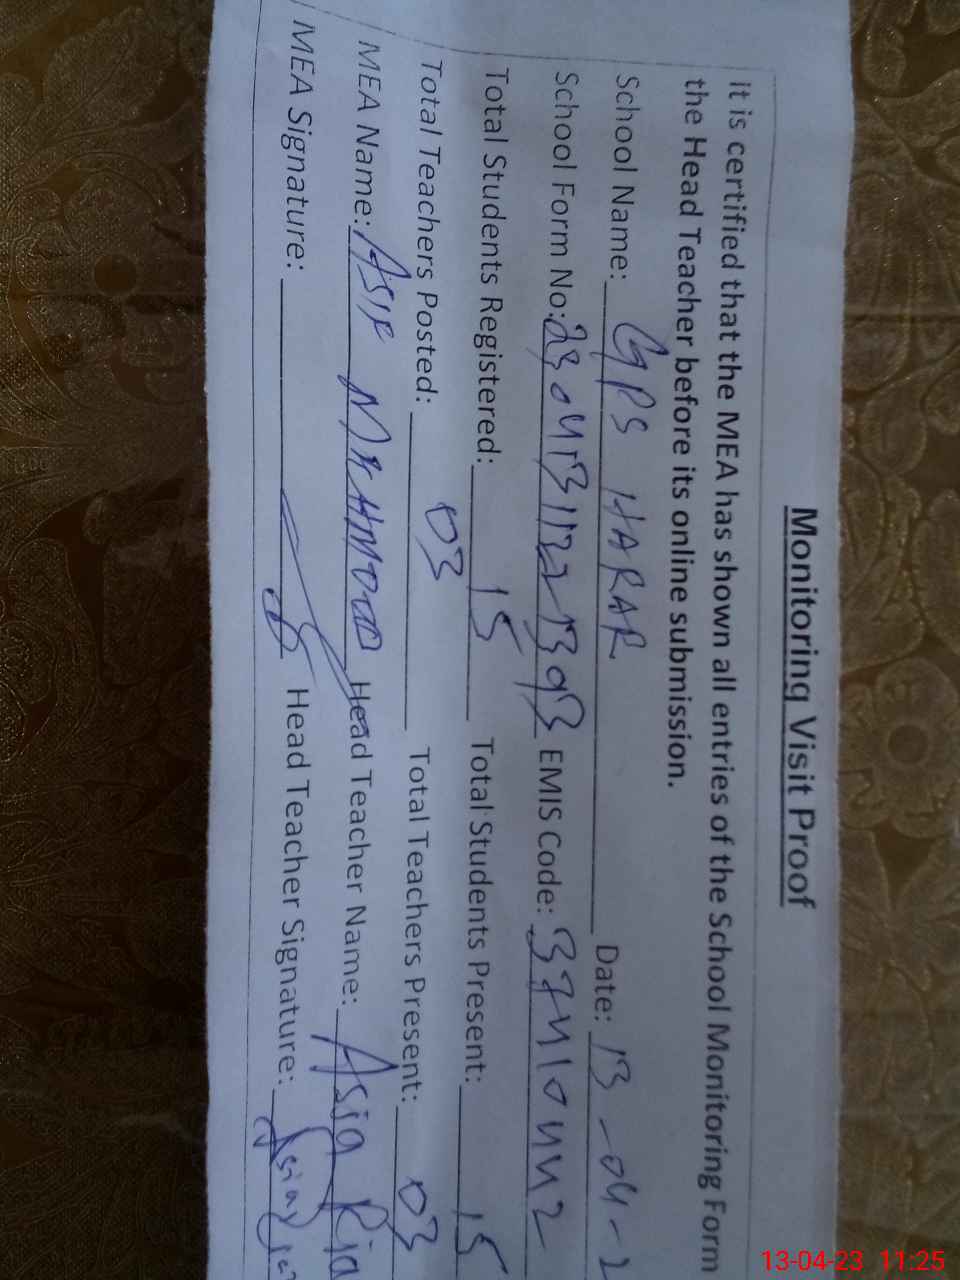 Monitoring Visit Proof
it is certified that the MEA has shown all entries of the School Monitoring Form
the Head Teacher before its online submission.
School Name: GPS HARAR Date: 13-04-2
School Form No: EMIS Code: 37410442
Total Students Registered: 15 Total Students Present: 15
Total Teachers Posted: 03 Total Teachers Present: 03
MEA Name: ASIF MEHMOOD Head Teacher Name: Asia Ria
MEA Signature: Head Teacher Signature:
13-04-23 11:25